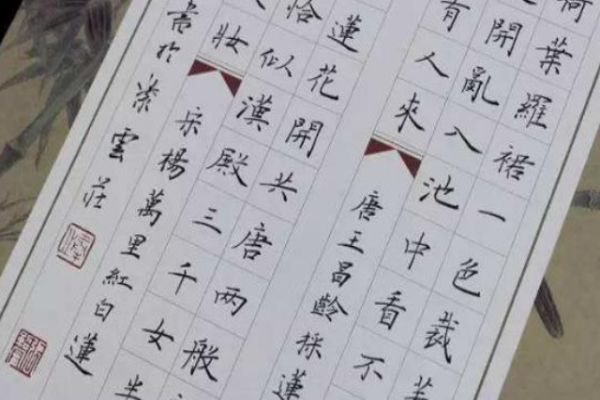 荷葉羅裙一色裁芙
開亂入池中看不
有人來 唐王昌齡採蓮
蓮花開共唐兩般
恰似漢殿三千女半
妝 宋楊萬里紅白蓮
書於紫雲莊